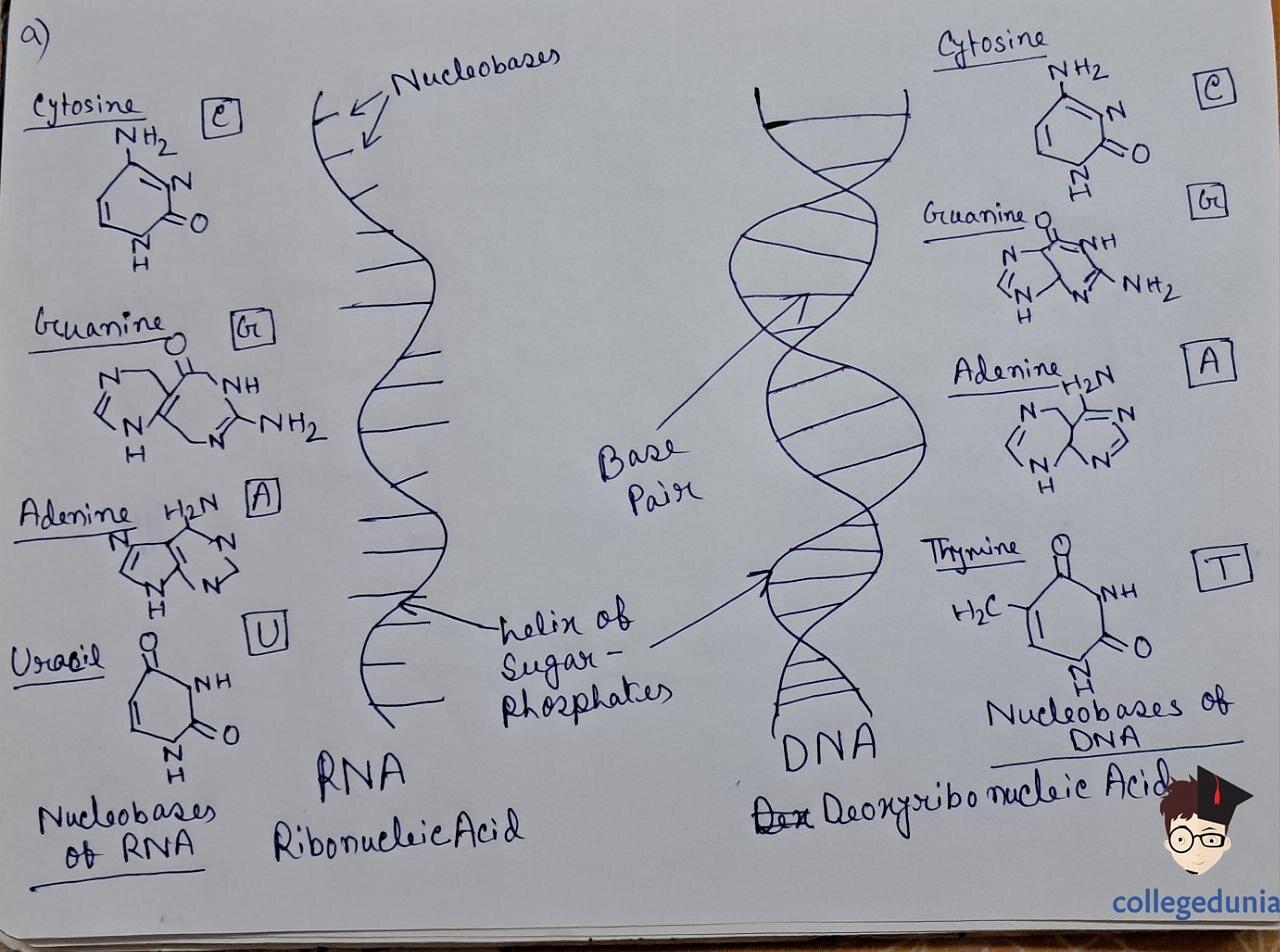 a)
Nucleobases
Cytosine
C
NH2
N
O
N
H
Guanine
G
O
N
NH
N
H
N
NH2
Adenine
A
H2N
N
N
N
H
N
Uracil
U
O
NH
O
N
H
Nucleobases
of RNA
RNA
Ribonucleic Acid
Base
Pair
helix of
Sugar-
Phosphates
DNA
Dex Deoxyribonucleic Acid
Cytosine
C
NH2
N
O
N
H
Guanine
G
O
N
NH
N
H
N
NH2
Adenine
A
H2N
N
N
N
H
N
Thymine
T
O
H3C
NH
O
N
H
Nucleobases of
DNA
collegedunia